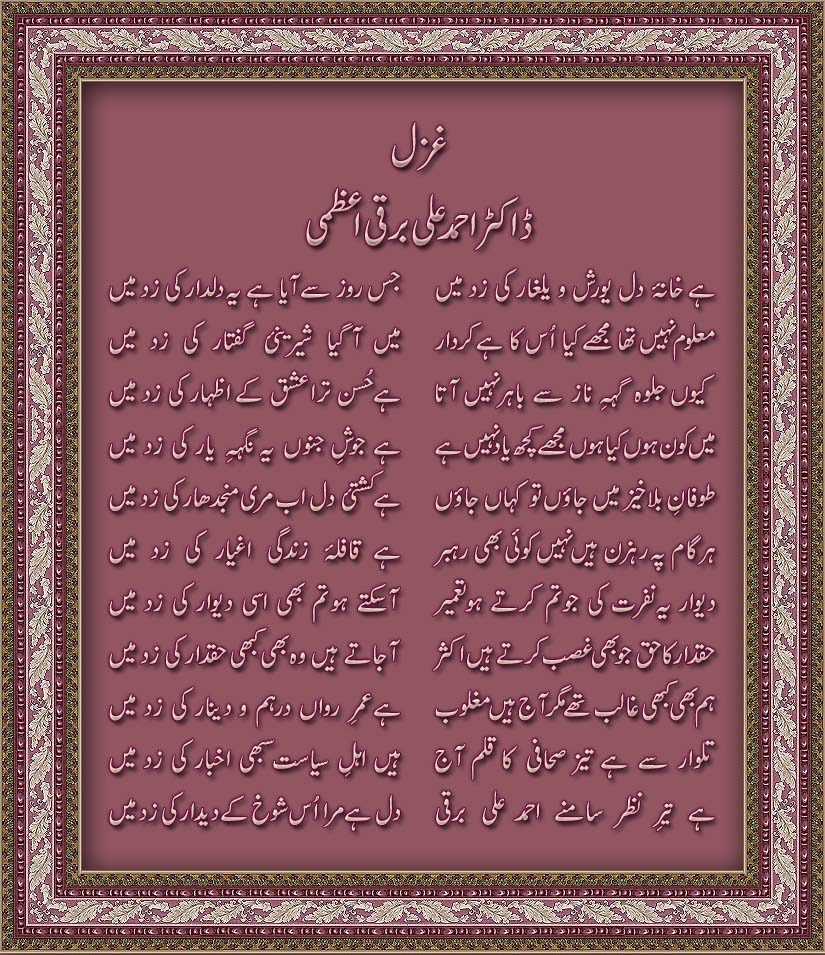 غزل
ڈاکٹر احمد علی برقی اعظمی
ہے خانۂ دل یورش و یلغار کی زد میں جس روز سے آیا ہے یہ دلدار کی زد میں
معلوم نہیں تھا مجھے کیا اُس کا ہے کردار میں آ گیا شیرینیٔ گفتار کی زد میں
کیوں جلوہ گہہِ ناز سے باہر نہیں آتا ہے حُسن ترا عشق کے اظہار کی زد میں
میں کون ہوں کیا ہوں مجھے کچھ یاد نہیں ہے ہے جوشِ جنوں یہ نگہہِ یار کی زد میں
طوفانِ بلاخیز میں جاؤں تو کہاں جاؤں ہے کشتیٔ دل اب مری منجدھار کی زد میں
ہر گام پہ رہزن ہیں نہیں کوئی بھی رہبر ہے قافلۂ زندگی اغیار کی زد میں
دیوار یہ نفرت کی جو تم کرتے ہو تعمیر آسکتے ہو تم بھی اسی دیوار کی زد میں
حقدار کا حق جو بھی غصب کرتے ہیں اکثر آجاتے ہیں وہ بھی کبھی حقدار کی زد میں
ہم بھی کبھی غالب تھے مگر آج ہیں مغلوب ہے عمرِ رواں درہم و دینار کی زد میں
تلوار سے ہے تیز صحافی کا قلم آج ہیں اہلِ سیاست سبھی اخبار کی زد میں
ہے تیرِ نظر سامنے احمد علی برقی دل ہے مرا اُس شوخ کے دیدار کی زد میں